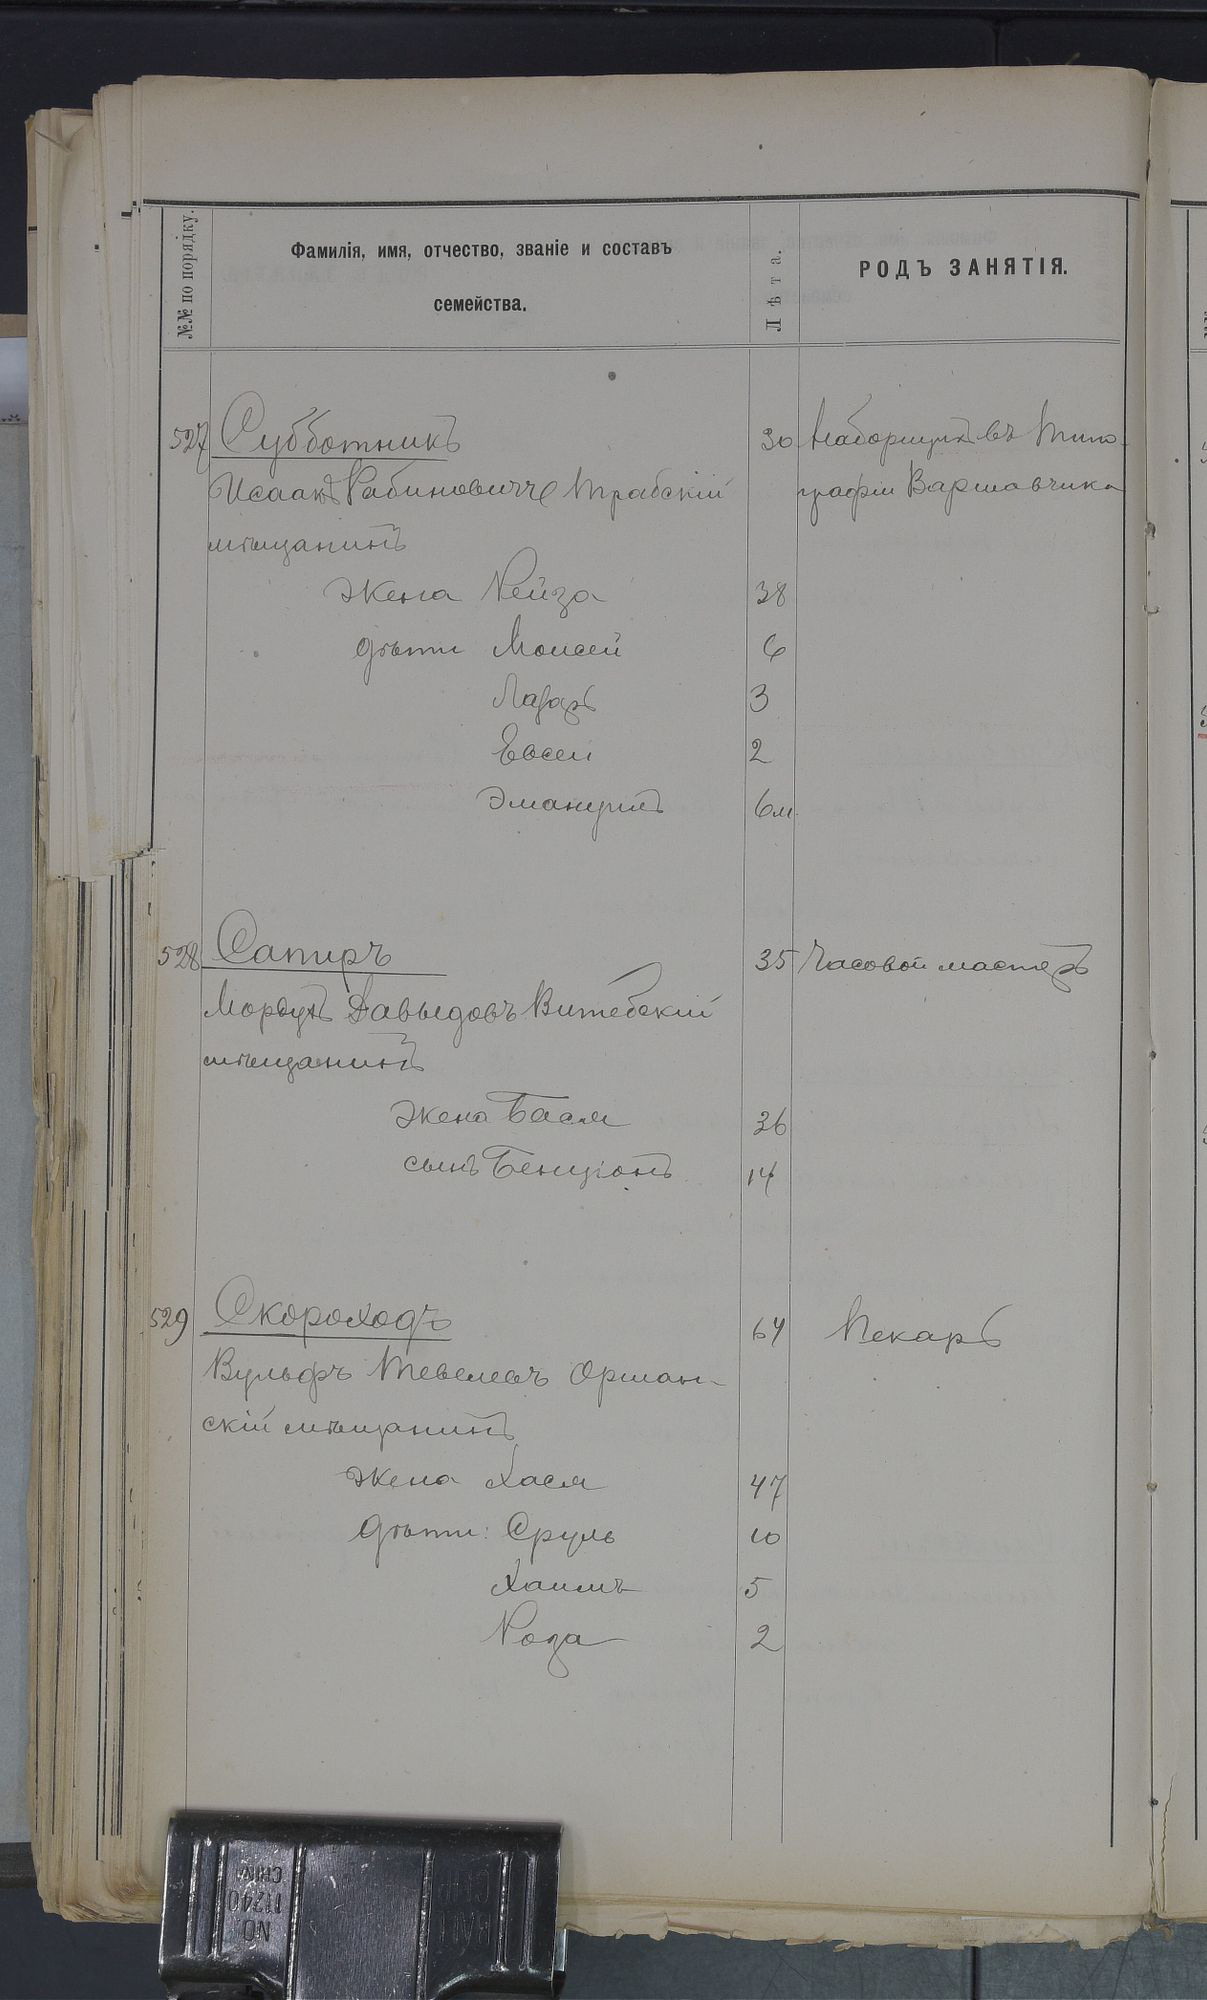 №№ по порядку.
Фамилія, имя, отчество, званіе и составъ
семейства.
Лѣта.
РОДЪ ЗАНЯТІЯ.
527 Субботникъ 30 Наборщикъ въ Типо-
Исаакъ Рабиновичъ Трабскій графіи Варшавчика
мѣщанинъ
жена Рейза 38
дѣти Моисей 6
Лазарь 3
Евсей 2
Эмануилъ 6 м
528 Сапиръ 35 Часовой мастеръ
Мордухъ Давыдовъ Витебскій
мѣщанинъ
жена Бася 36
сынъ Бенціонъ 14
529 Скороходъ 64 Пекарь
Вульфъ Тевелевъ Оршан-
скій мѣщанинъ
жена Хася 47
дѣти: Сруль 10
Хаимъ 5
Роза 2
NO.
11240
CHIC